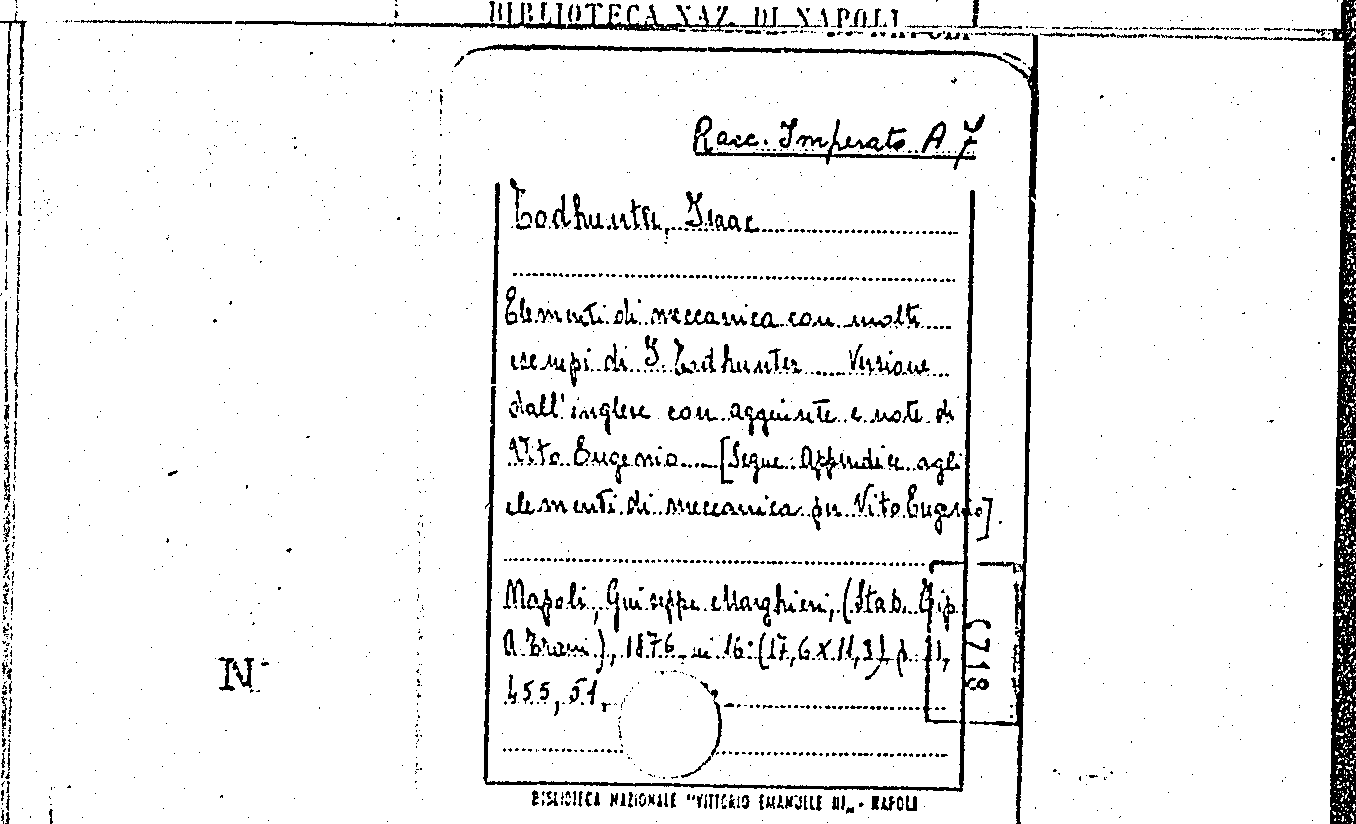 BIBLIOTECA NAZ. DI NAPOLI
Racc. Imperato A 7
Todhunter, Isaac
Elementi di meccanica con molti
esempi di I. Todhunter Versione
dall'inglese con aggiunte e note di
Vito Eugenio [Segue: Appendice agli
elementi di meccanica per Vito Eugenio].
Napoli, Giuseppe Marghieri, (Stab. Tip.
A. Trani), 1876 in 16: (17,6 X 11,3) p. 11,
455, 51,
N
BIBLIOTECA NAZIONALE "VITTORIO EMANUELE III" - NAPOLI